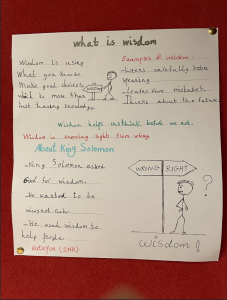 what is wisdom
Wisdom is using
What you know
Make good choices,
which is more than
just having knowledge.
WISDOM
Examples of wisdom
-Listens carefully before
speaking.
-Learns from mistakes.
-Thinks about the future.
Wisdom helps us think before we act.
Wisdom is knowing right from wrong.
About King Solomon
-King Solomon asked
God for wisdom.
-He wanted to be
-He used wisdom to
help people.
WRONG RIGHT
?
Wisdom!